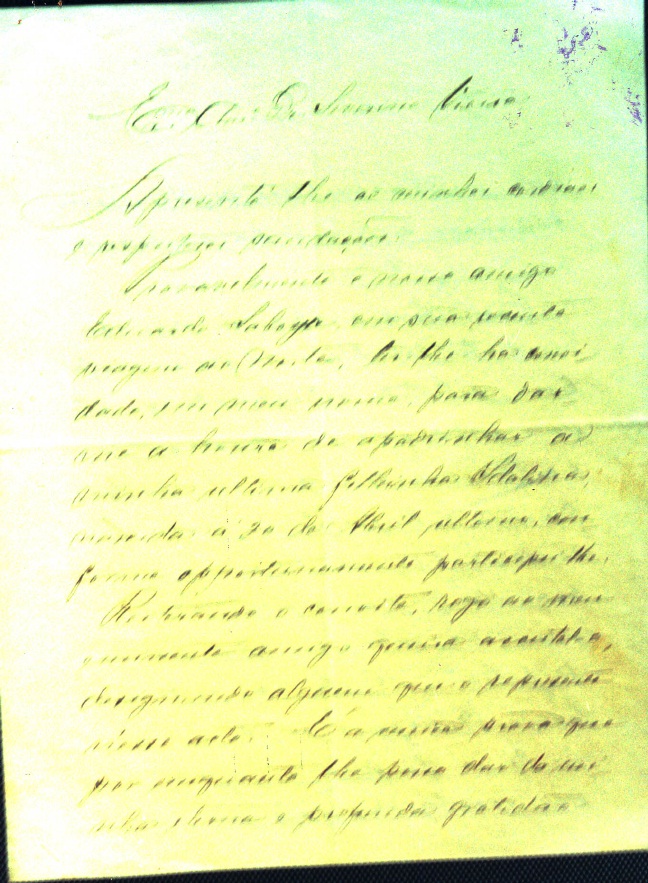 Exmo. Am.º Dr. Severino Vieira
Apresento lhe as minhas cordiaes
e respeitosas saudações.
Provavelmente o nosso amigo
Eduardo Saboya, em sua recente
viagem ao Norte, ter lhe ha convi
dado, em meu nome, para dar
me a honra de apadrinhar a
minha ultima filhinha
nascida a 30 de Abril ultimo, con
forme opportunamente participei lhe.
Reiterando o convite, rogo ao
eminente amigo queira aceital-o,
designando alguem que o represente
n'esse acto. É a unica prova que
por emquanto lhe posso dar da mi
nha eterna e profunda gratidão